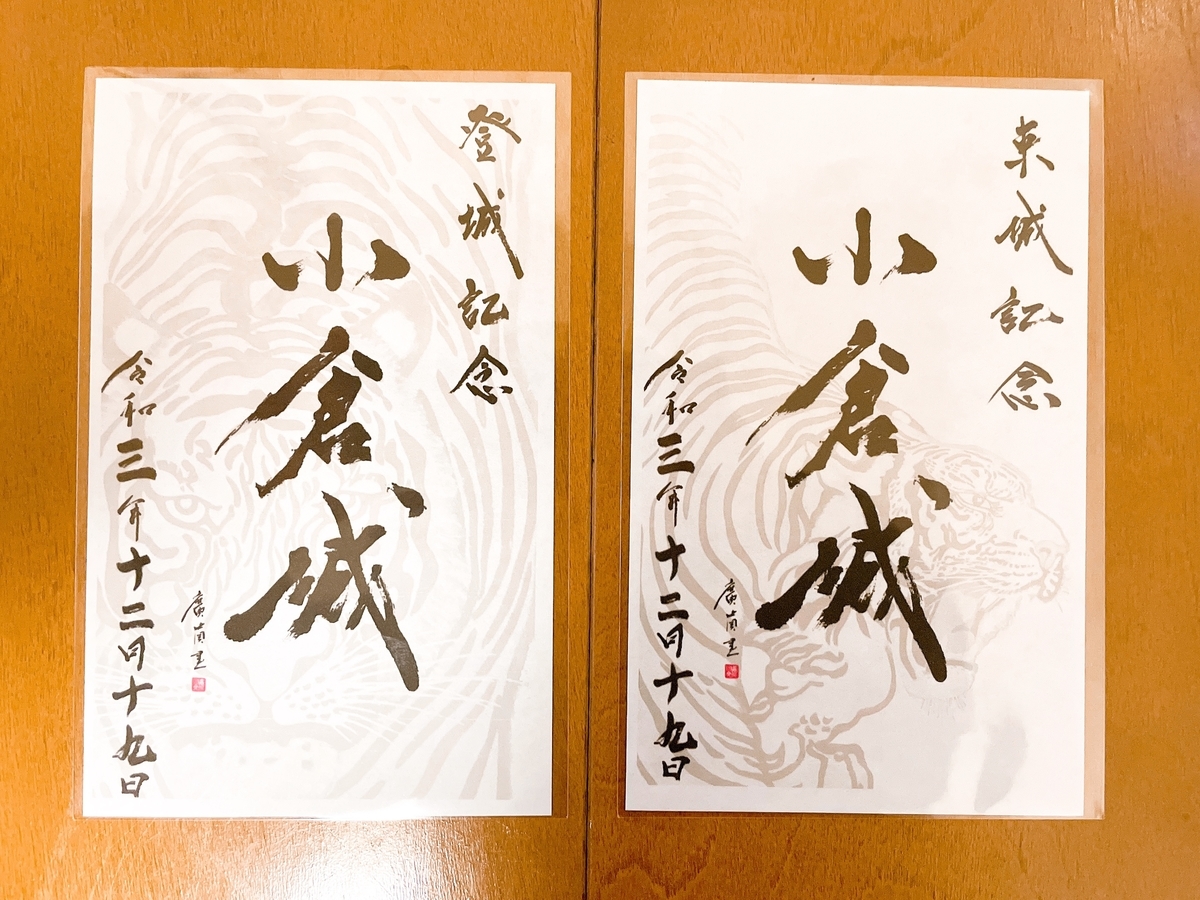 登城記念
小倉城
令和三年十二月十九日
来城記念
小倉城
令和三年十二月十九日